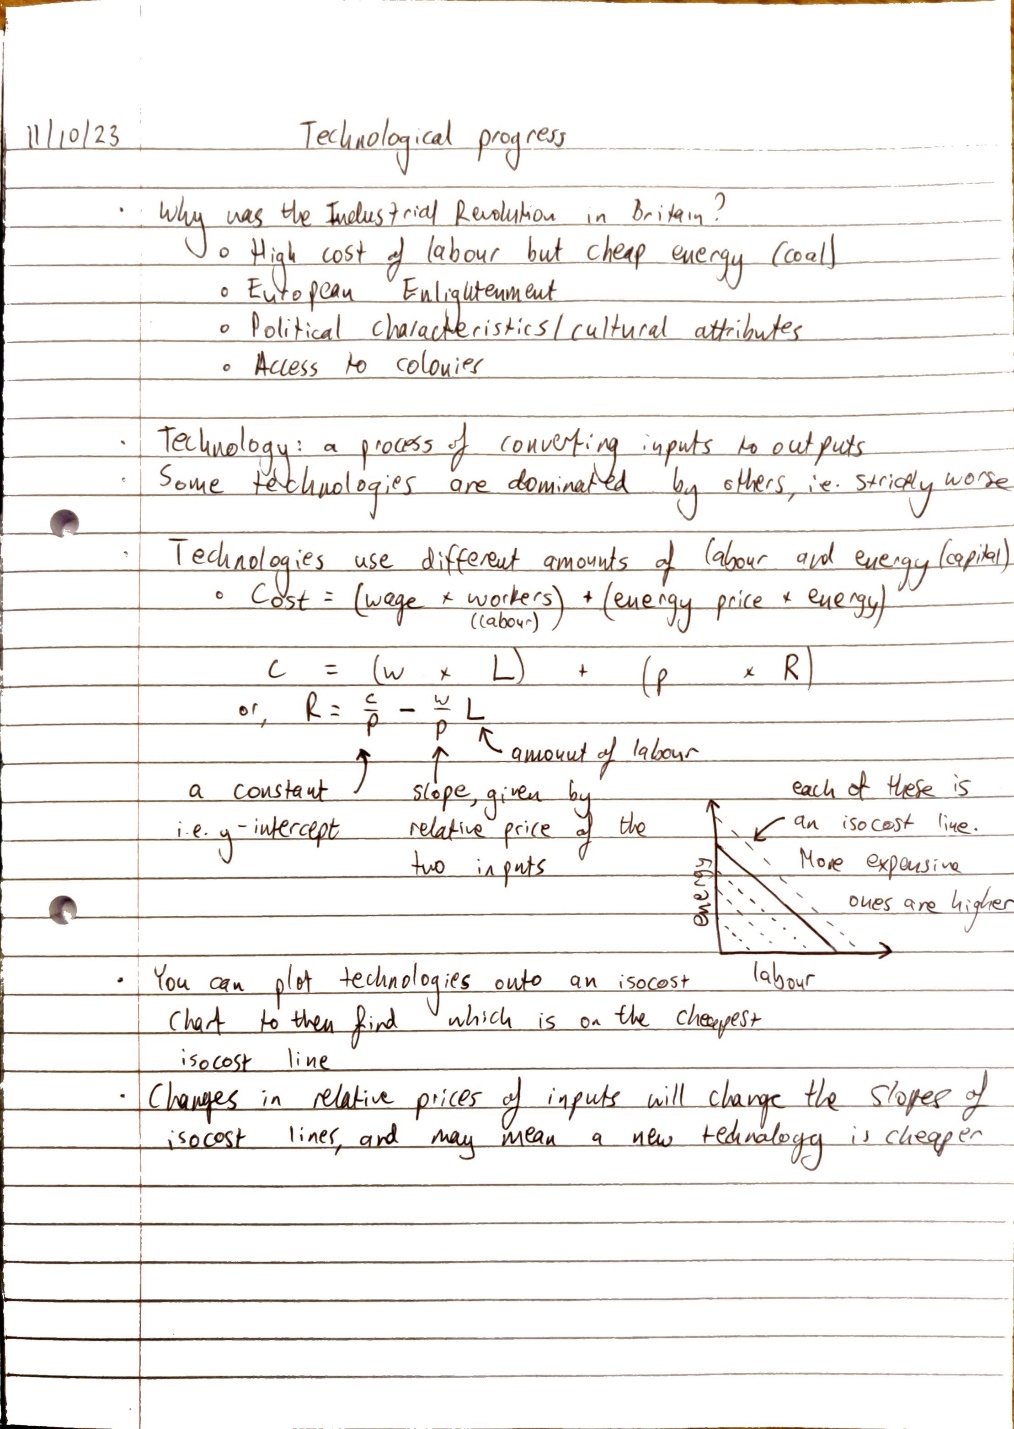 11/10/23 Technological progress
· Why was the Industrial Revolution in Britain?
o High cost of labour but cheap energy (coal)
o European Enlightenment
o Political characteristics/cultural attributes
o Access to colonies
· Technology: a process of converting inputs to outputs
· Some technologies are dominated by others, i.e. strictly worse
· Technologies use different amounts of labour and energy (capital)
o Cost = (wage × workers) + (energy price × energy)
(labour)
C = (w × L) + (p × R)
or, R = c/p - w/p L
amount of labour
a constant
i.e. y-intercept
slope, given by
relative price of the
two inputs
each of these is
an isocost line.
More expensive
ones are higher
energy
labour
· You can plot technologies onto an isocost
chart to then find which is on the cheapest
isocost line
· Changes in relative prices of inputs will change the slopes of
isocost lines, and may mean a new technology is cheaper